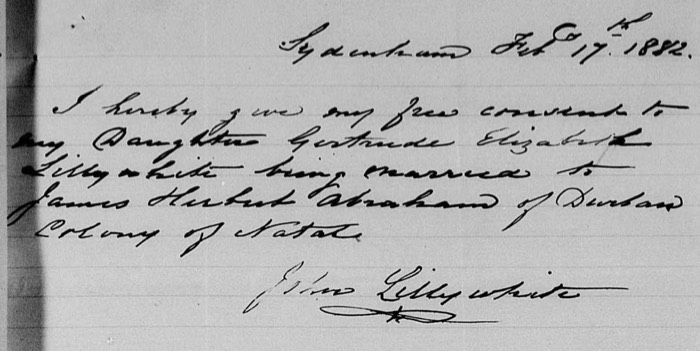 Sydenham Feby 17th 1882.
I hereby give my free consent to
my Daughter Gertrude Elizabeth
Lillywhite being married to
James Herbert Abraham of Durban
Colony of Natal
John Lillywhite